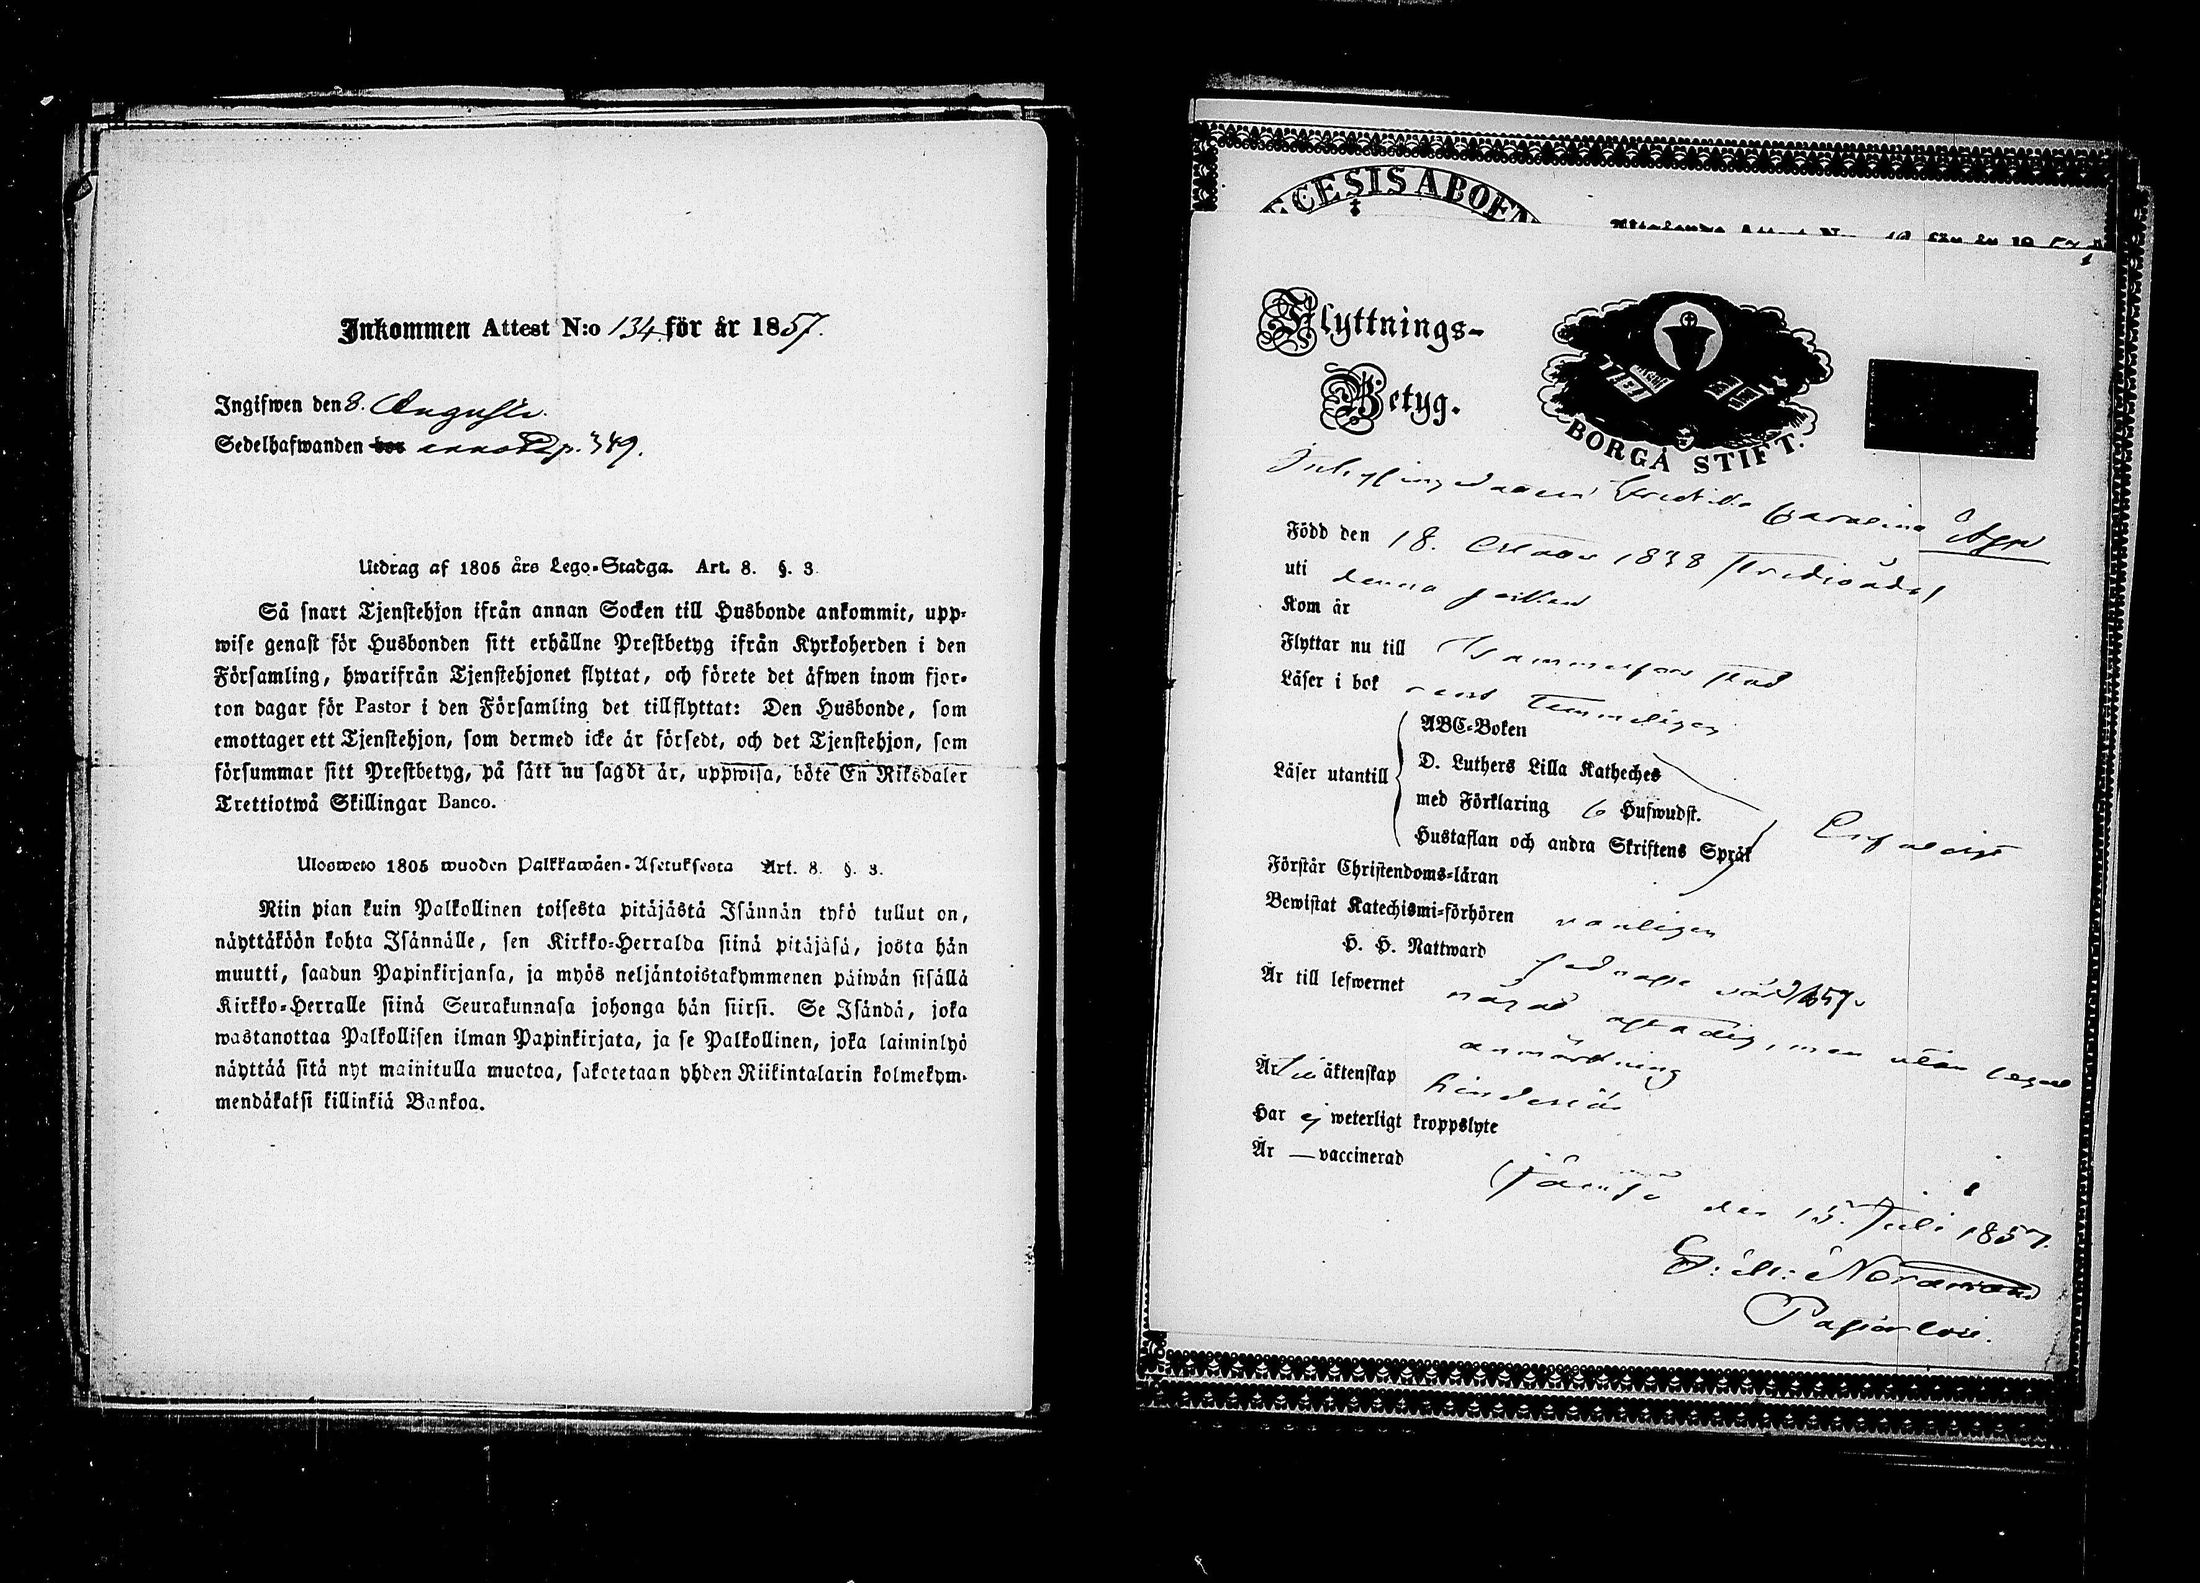 Inkommen Attest N:o 134 för år 1857.
Ingifwen den 8. Augusti.
Sedelhafwanden hos annot. p. 349.
Utdrag af 1805 års Lego-Stadga. Art. 8. §. 3.
Så snart Tjenstehjon ifrån annan Socken till Husbonde ankommit, upp-
wise genast för Husbonden sitt erhållne Prestbetyg ifrån Kyrkoherden i den
Församling, hwarifrån Tjenstehjonet flyttat, och förete det äfwen inom fjor-
ton dagar för Pastor i den Församling det tillflyttat: Den Husbonde, som
emottager ett Tjenstehjon, som dermed icke är försedt, och det Tjenstehjon, som
försummar sitt Prestbetyg, på sätt nu sagdt är, uppwisa, böte En Riksdaler
Trettiotwå Skillingar Banco.
Ulosweto 1805 wuoden Palkkawäen-Asetuksesta Art. 8. §. 3.
Niin pian kuin Palkollinen toisesta pitäjästä Isännän tykö tullut on,
näyttäköön kohta Isännälle, sen Kirkko-Herralda siinä pitäjäsä, josta hän
muutti, saadun Papinkirjansa, ja myös neljäntoistakymmenen päiwän sisällä
Kirkko-Herralle siinä Seurakunnasa johonga hän siirsi. Se Isändä, joka
wastanottaa Palkollisen ilman Papinkirjata, ja se Palkollinen, joka laiminlyö
näyttää sitä nyt mainitulla muotoa, sakotetaan yhden Riikintalarin kolmekym-
mendäkaksi killinkiä Bankoa.
CESIS ABOEN
Flyttnings-
Betyg.
BORGÅ STIFT.
Inhyslingsdottren Fredrika Carolina
Född den 18. October 1838
uti denna socken
Kom år
Flyttar nu till Tammerfors stad
Läser i bok rent temmeligen
Läser utantill
ABC-Boken
D. Luthers Lilla Katheches
med Förklaring 6 Hufwudst.
Hustaflan och andra Skriftens Språk
Förstår Christendoms-läran
Bewistat Katechismi-förhören vanligen
H. H. Nattward sednast 1857.
Är till lefwernet något ostadig, men utan laga
anmärkning
Är till äktenskap hinderlös
Har ej weterligt kroppslyte
Är — vaccinerad
Jämsä den 15. Juli 1857.
G: M: Nordman
Past. loci.